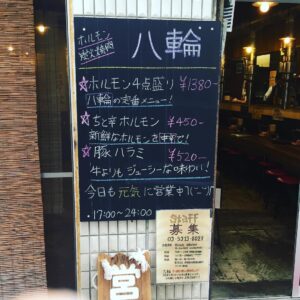 ホルモン
炭火焼肉
八輪
☆ホルモン4点盛り ¥1380-
八輪の定番メニュー!
☆ちと辛ホルモン ¥450-
新鮮なホルモンを
☆豚ハラミ ¥520-
牛よりもジューシーな味わい!
今日も元気に営業中
・17:00〜24:00
Staff
募集
03-5213-8029
営